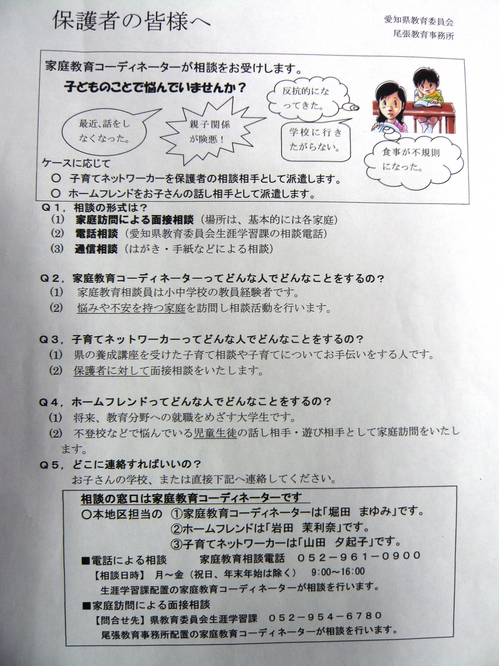 保護者の皆様へ
愛知県教育委員会
尾張教育事務所
家庭教育コーディネーターが相談をお受けします。
子どものことで悩んでいませんか?
最近、話をし
なくなった。
親子関係
が険悪!
反抗的にな
ってきた。
学校に行き
たがらない。
食事が不規則
になった。
ケースに応じて
○ 子育てネットワーカーを保護者の相談相手として派遣します。
○ ホームフレンドをお子さんの話し相手として派遣します。
Q1.相談の形式は?
(1) 家庭訪問による面接相談(場所は、基本的には各家庭)
(2) 電話相談(愛知県教育委員会生涯学習課の相談電話)
(3) 通信相談(はがき・手紙などによる相談)
Q2.家庭教育コーディネーターってどんな人でどんなことをするの?
(1) 家庭教育相談員は小中学校の教員経験者です。
(2) 悩みや不安を持つ家庭を訪問し相談活動を行います。
Q3.子育てネットワーカーってどんな人でどんなことをするの?
(1) 県の養成講座を受けた子育て相談や子育てについてお手伝いをする人です。
(2) 保護者に対して面接相談をいたします。
Q4.ホームフレンドってどんな人でどんなことをするの?
(1) 将来、教育分野への就職をめざす大学生です。
(2) 不登校などで悩んでいる児童生徒の話し相手・遊び相手として家庭訪問をいたし
ます。
Q5.どこに連絡すればいいの?
お子さんの学校、または直接下記へ連絡してください。
相談の窓口は家庭教育コーディネーターです
○本地区担当の ①家庭教育コーディネーターは「堀田 まゆみ」です。
②ホームフレンドは「岩田 茉利奈」です。
③子育てネットワーカーは「山田 夕起子」です。
■電話による相談 家庭教育相談電話 052-961-0900
【相談日時】 月~金(祝日、年末年始は除く) 9:00~16:00
生涯学習課配置の家庭教育コーディネーターが相談を行います。
■家庭訪問による面接相談
【問合せ先】県教育委員会生涯学習課 052-954-6780
尾張教育事務所配置の家庭教育コーディネーターが相談を行います。